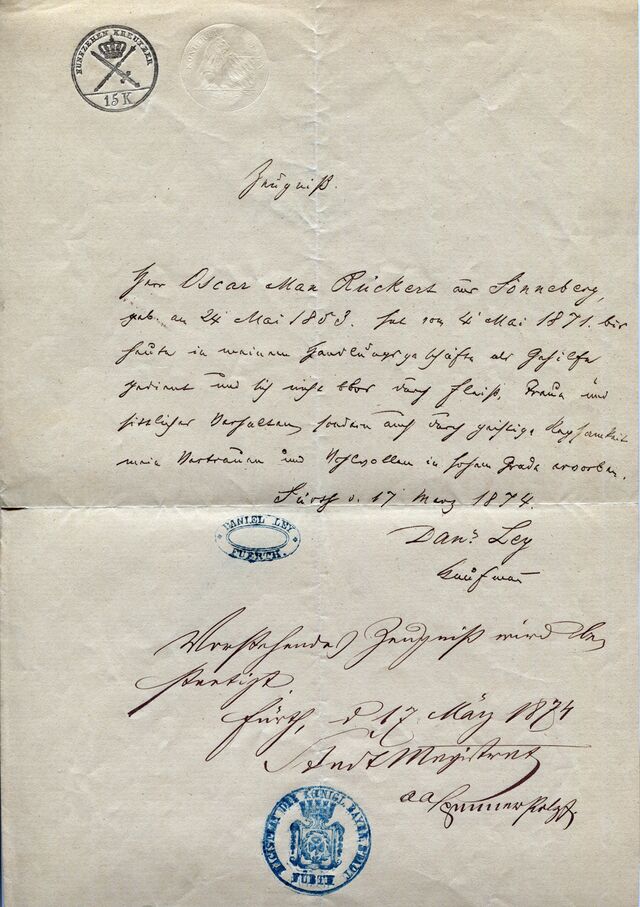 FUNFZEHEN KREUTZER
15 K
Zeugniß.
Herr Oscar Max Rückert aus Sonneberg,
geb. am 24 Mai 1853. hat vom 4 Mai 1871. bis
heute in meinem Handlungsgeschäfte als Gehilfe
gedient und sich nicht blos durch Fleiß, Treue und
sittliches Verhalten, sondern auch durch geistige Regsamkeit
mein Vertrauen und Wohlwollen in hohem Grade erworben.
Fürth d. 17 März 1874.
DANIEL LEY
FUERTH.
Danl. Ley
Kaufmann
Vorstehendes Zeugniß wird be
staetigt.
Fürth, d 17 März 1874
Stadt Magistrat
MAGISTRAT DER KÖNIGL. BAYER. STADT
FÜRTH